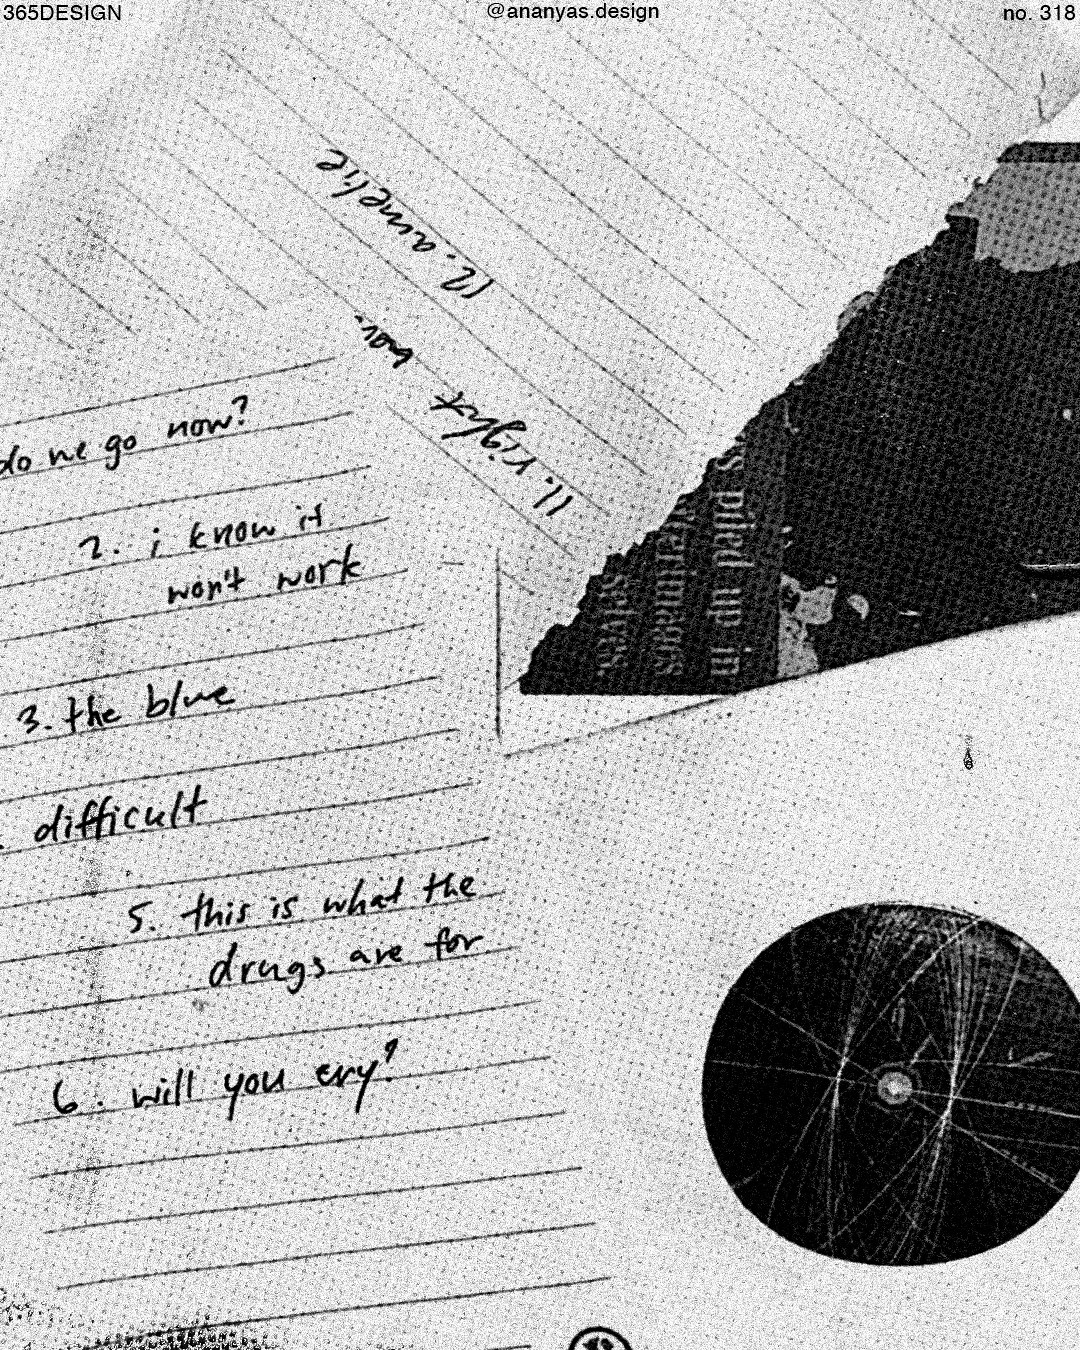 365DESIGN
@ananyas.design
no. 318
12. amelie
11. right now.
do we go now?
2. i know it
won't work
3. the blue
difficult
5. this is what the
drugs are for
6. will you cry?
piled up in